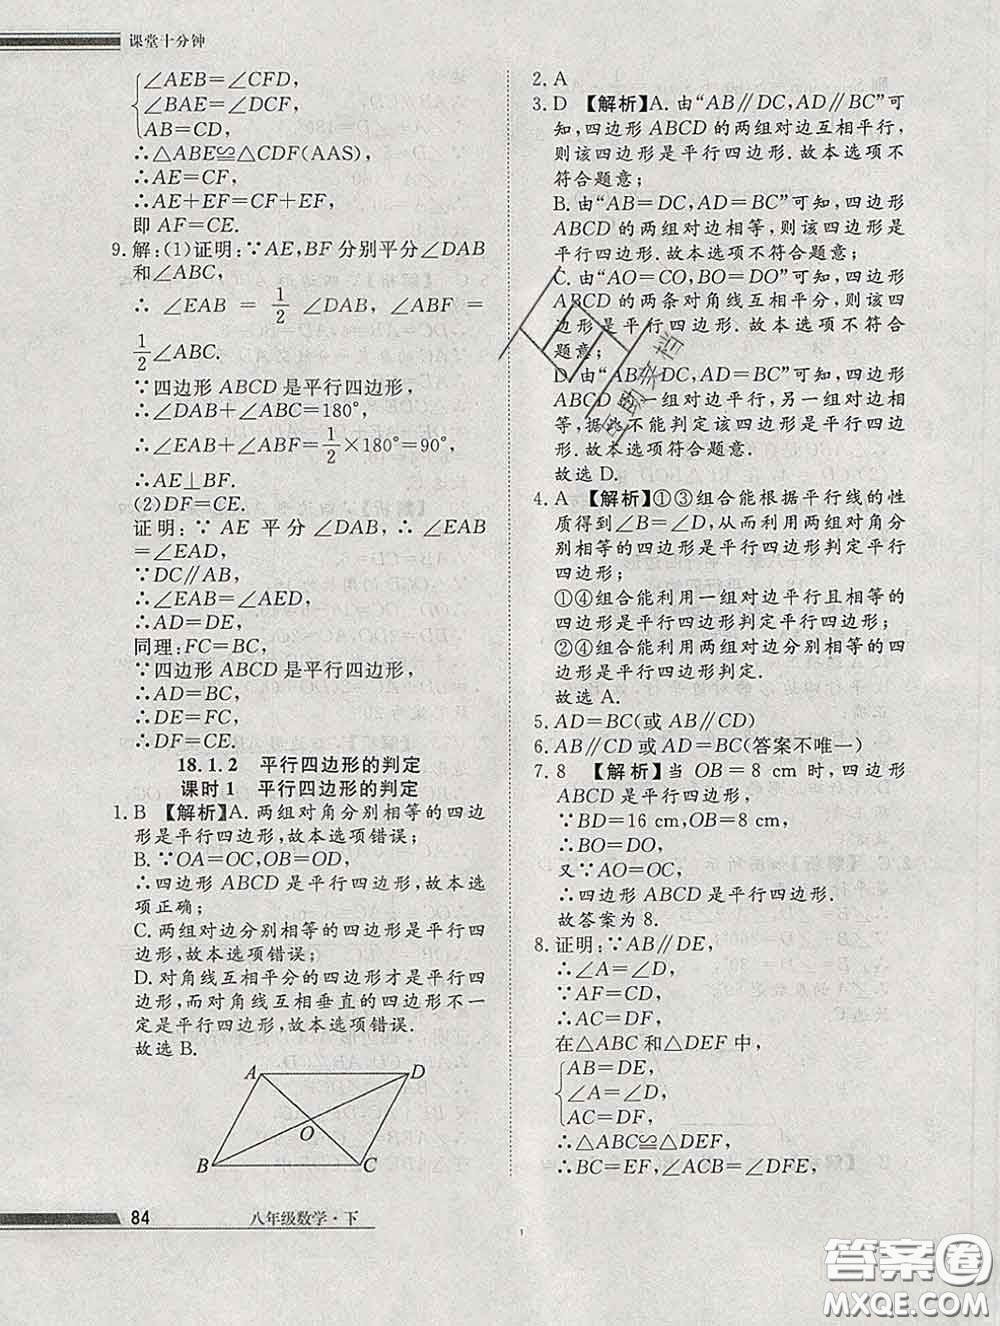 课堂十分钟
∠AEB=∠CFD,
∠BAE=∠DCF,
AB=CD,
∴△ABE≌△CDF(AAS),
∴AE=CF,
∴AE+EF=CF+EF,
即 AF=CE.
9. 解:(1)证明:∵AE,BF 分别平分∠DAB
和∠ABC,
∴ ∠EAB = 1/2 ∠DAB, ∠ABF =
1/2 ∠ABC.
∵四边形 ABCD 是平行四边形,
∴∠DAB+∠ABC=180°,
∴∠EAB+∠ABF=1/2×180°=90°,
∴AE⊥BF.
(2)DF=CE.
证明:∵ AE 平分∠DAB,∴∠EAB
=∠EAD,
∵DC∥AB,
∴∠EAB=∠AED,
∴AD=DE,
同理:FC=BC,
∵四边形 ABCD 是平行四边形,
∴AD=BC,
∴DE=FC,
∴DF=CE.
18.1.2 平行四边形的判定
课时1 平行四边形的判定
1. B 【解析】A. 两组对角分别相等的四边
形是平行四边形,故本选项错误;
B. ∵OA=OC,OB=OD,
∴四边形 ABCD 是平行四边形,故本选
项正确;
C. 两组对边分别相等的四边形是平行四
边形,故本选项错误;
D. 对角线互相平分的四边形才是平行四
边形,而对角线互相垂直的四边形不一
定是平行四边形,故本选项错误.
故选 B.
A D
O
B C
84 八年级数学·下
2. A
3. D 【解析】A. 由“AB∥DC,AD∥BC”可
知,四边形 ABCD 的两组对边互相平行,
则该四边形是平行四边形. 故本选项不
符合题意;
B. 由“AB=DC,AD=BC”可知,四边形
ABCD 的两组对边相等,则该四边形是
平行四边形. 故本选项不符合题意;
C. 由“AO=CO,BO=DO”可知,四边形
ABCD 的两条对角线互相平分,则该四
边形是平行四边形. 故本选项不符合
题意;
D. 由“AB∥DC,AD=BC”可知,四边形
ABCD 的一组对边平行,另一组对边相
等,据此不能判定该四边形是平行四边
形. 故本选项符合题意.
故选 D.
4. A 【解析】①③组合能根据平行线的性
质得到∠B=∠D,从而利用两组对角分
别相等的四边形是平行四边形判定平行
四边形;
①④组合能利用一组对边平行且相等的
四边形是平行四边形判定平行四边形;
②④组合能利用两组对边分别相等的四
边形是平行四边形判定.
故选 A.
5. AD=BC(或 AB∥CD)
6. AB∥CD 或 AD=BC(答案不唯一)
7. 8 【解析】当 OB=8 cm 时,四边形
ABCD 是平行四边形,
∵BD=16 cm,OB=8 cm,
∴BO=DO,
又∵AO=OC,
∴四边形 ABCD 是平行四边形.
故答案为 8.
8. 证明:∵AB∥DE,
∴∠A=∠D,
∵AF=CD,
∴AC=DF,
在△ABC 和△DEF 中,
AB=DE,
∠A=∠D,
AC=DF,
∴△ABC≌△DEF,
∴BC=EF,∠ACB=∠DFE,
答案圈
MXQE.COM